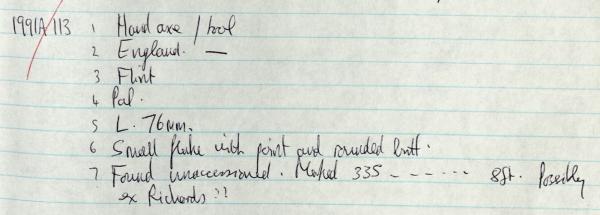 1991A 113 1 Hand axe / tool
2 England. —
3 Flint
4 Pal.
5 L. 76mm.
6 Small flake with point and rounded butt.
7 Found unaccessioned. Marked 335 - - - - - - 8ft. Possibly
ex Richards ??